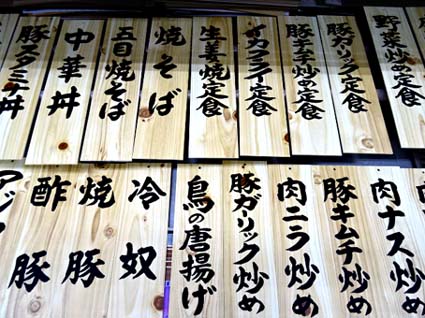 野菜炒め定食
豚ガーリック定食
豚キムチ炒め定食
イカフライ定食
生姜焼定食
焼そば
五目焼そば
中華丼
豚スタミナ丼
肉ナス炒め
豚キムチ炒め
肉ニラ炒め
豚ガーリック炒め
鳥の唐揚げ
冷奴
焼豚
酢豚